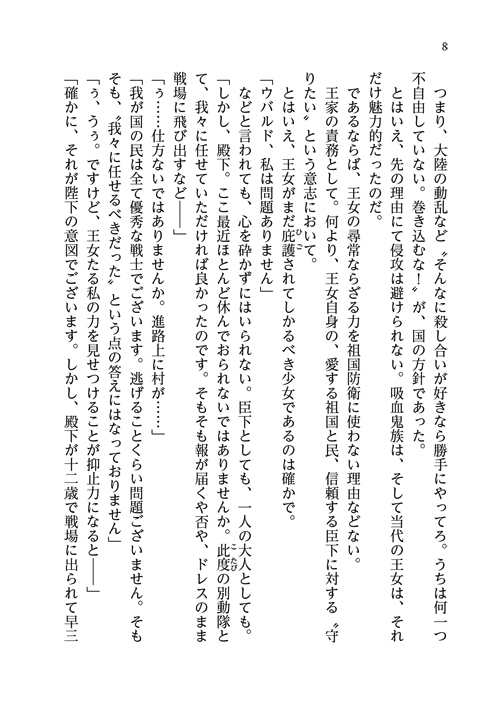 8
つまり、大陸の動乱など〝そんなに殺し合いが好きなら勝手にやってろ。うちは何一つ
不自由していない。巻き込むな！〟が、国の方針であった。
とはいえ、先の理由にて侵攻は避けられない。吸血鬼族は、そして当代の王女は、それ
だけ魅力的だったのだ。
であるならば、王女の尋常ならざる力を祖国防衛に使わない理由などない。
王家の責務として。何より、王女自身の、愛する祖国と民、信頼する臣下に対する〝守
りたい〟という意志において。
とはいえ、王女がまだ庇護されてしかるべき少女であるのは確かで。
「ウバルド、私は問題ありません」
などと言われても、心を砕かずにはいられない。臣下としても、一人の大人としても。
「しかし、殿下。ここ最近ほとんど休んでおられないではありませんか。此度の別動隊と
て、我々に任せていただければ良かったのです。そもそも報が届くや否や、ドレスのまま
戦場に飛び出すなど――」
「ぅ……仕方ないではありませんか。進路上に村が……」
「我が国の民は全て優秀な戦士でございます。逃げることくらい問題ございません。そも
そも、〝我々に任せるべきだった〟という点の答えにはなっておりません」
「ぅ、うぅ。ですけど、王女たる私の力を見せつけることが抑止力になると――」
「確かに、それが陛下の意図でございます。しかし、殿下が十二歳で戦場に出られて早三